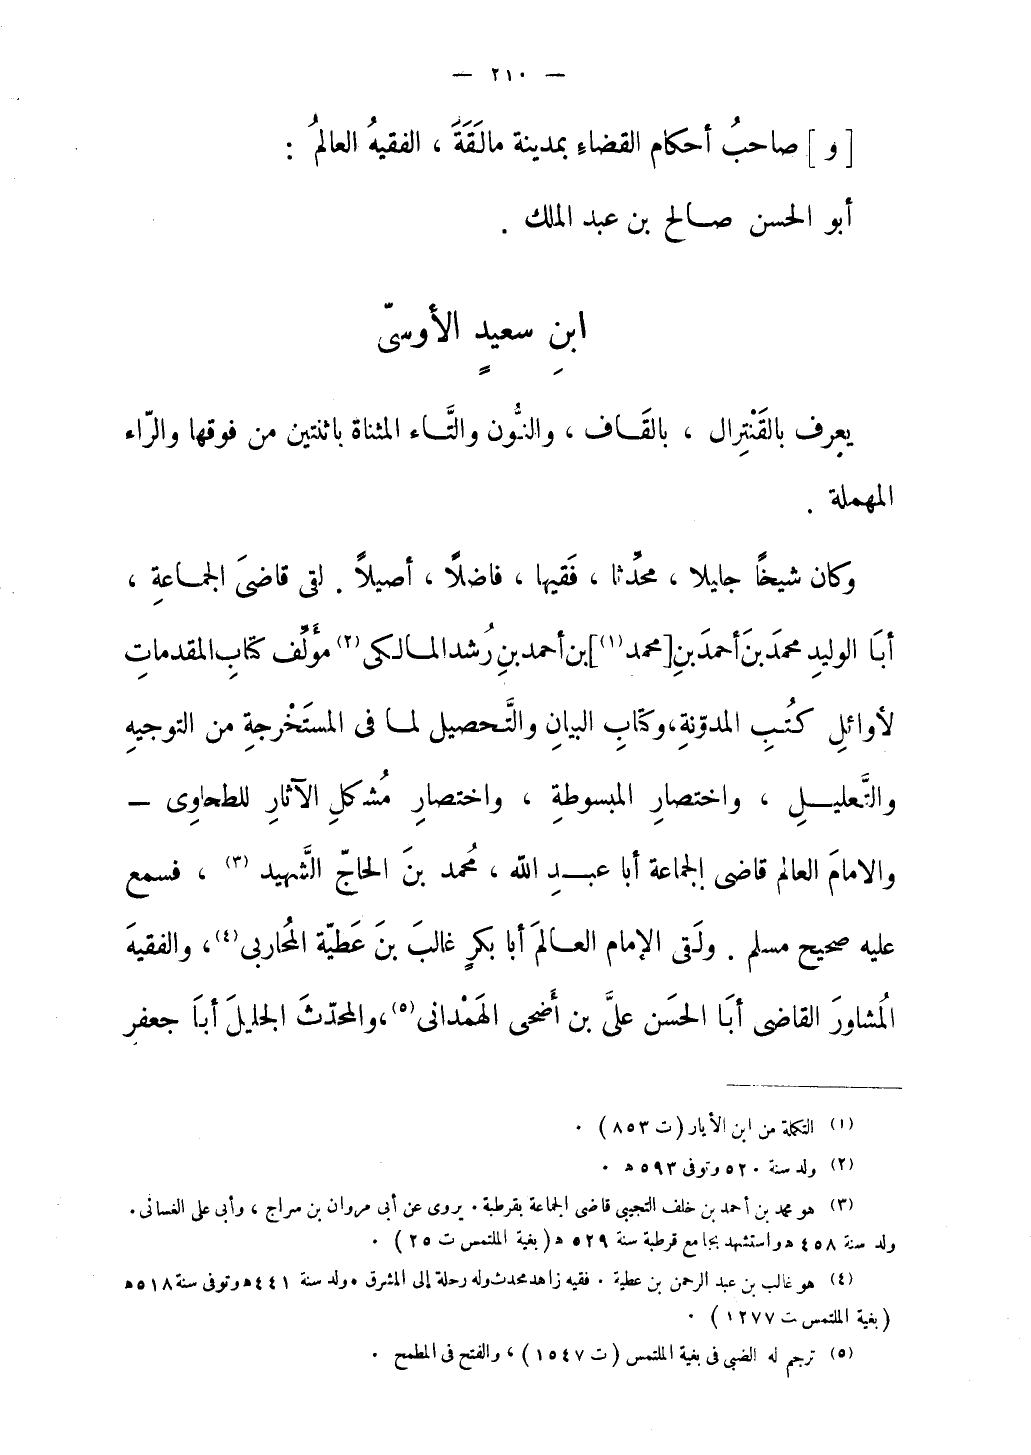 — ٢١٠ —
[ و ] صاحبُ أحكام القضاءِ بمدينة مالَقَةَ ، الفقيهُ العالمُ :
أبو الحسن صالح بن عبد الملك .
ابنِ سعيدٍ الأوسىّ
يعرف بالقَنْتِرال ، بالقَاف ، والنُّون والتَّاء المثناة باثنتين من فوقها والرّاء
المهملة .
وكان شيخًا جليلا ، محدّثا ، فَقيها ، فاضلًا ، أصيلًا . لقى قاضىَ الجماعةِ ،
أبَا الوليدِ محمدَ بنَ أحمدَ بنِ [محمد (١)] بن أحمد بنِ رُشد المالكى (٢) مؤَلِّف كتابِ المقدماتِ
لأوائلِ كتُبِ المدوّنةِ، وكتابِ البيانِ والتَّحصيل لما فى المستَخْرجةِ من التوجيهِ
والتَّعليلِ ، واختصارِ المبسوطةِ ، واختصارِ مُشكلِ الآثارِ للطحاوِى —
والامامَ العالم قاضى الجماعة أبا عبدِ الله ، مُحمد بنَ الحاجّ الشَّهيد (٣) ، فسمع
عليه صحيح مسلم . ولَقى الإمام العالمَ أبا بكرٍ غالبَ بنَ عَطيّة المُحاربى (٤) ، والفقيهَ
المُشاورَ القاضى أبَا الحَسَن علىَّ بن أَضحى الهَمْدانى (٥) ، والمحدّثَ الجليلَ أباَ جعفرِ
(١) التكملة من ابن الأبار (ت ٨٥٣) .
(٢) ولد سنة ٥٢٠ وتوفى ٥٩٣ ھ .
(٣) هو محمد بن أحمد بن خلف التجيبى قاضى الجماعة بقرطبة . يروى عن أبى مروان بن سراج ، وأبى على الغسانى .
ولد سنة ٤٥٨ ھ واستشهد بجامع قرطبة سنة ٥٢٩ ھ (بغية الملتمس ت ٢٥) .
(٤) هو غالب بن عبد الرحمن بن عطية . فقيه زاهد محدث وله رحلة إلى المشرق . ولد سنة ٤٤١ ھ وتوفى سنة ٥١٨ ھ
(بغية الملتمس ت ١٢٧٧) .
(٥) ترجم له الضبى فى بغية الملتمس (ت ١٥٤٧) ، والفتح فى المطمح .